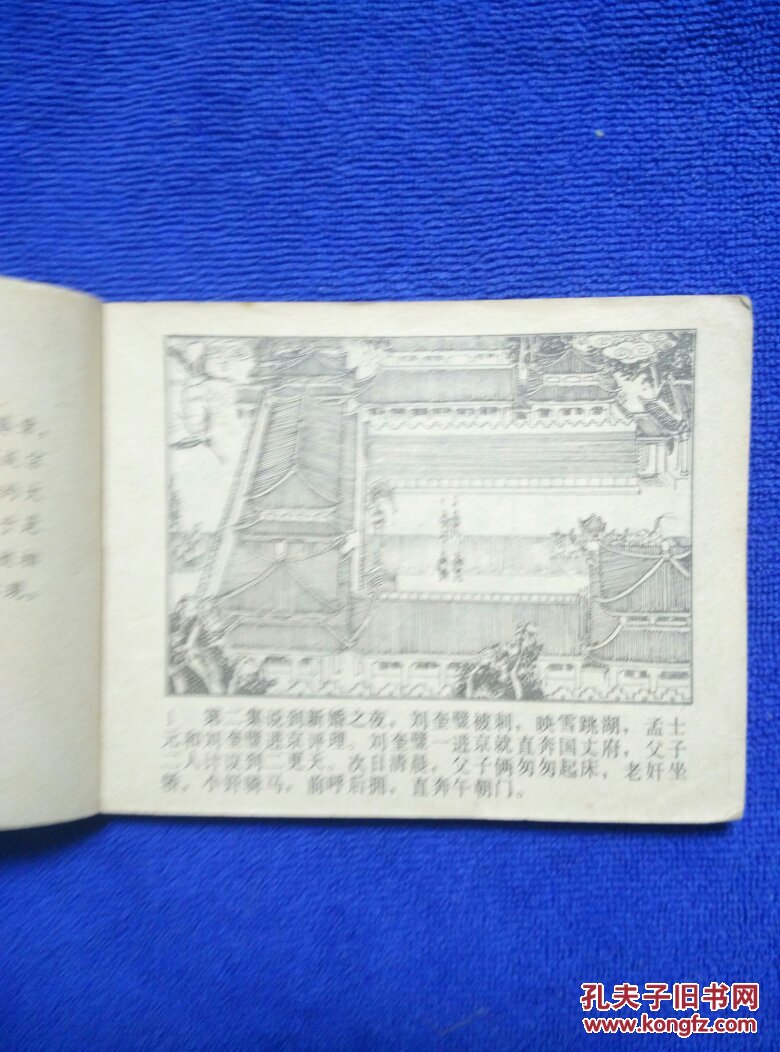 1 第二集说到新婚之夜，刘奎璧被刺，映雪跳湖，孟士
元和刘奎璧进京评理。刘奎璧一进京就直奔国丈府，父子
二人计议到二更天。次日清晨，父子俩匆匆起床，老奸坐
轿，小奸骑马，前呼后拥，直奔午朝门。
孔夫子旧书网
www.kongfz.com